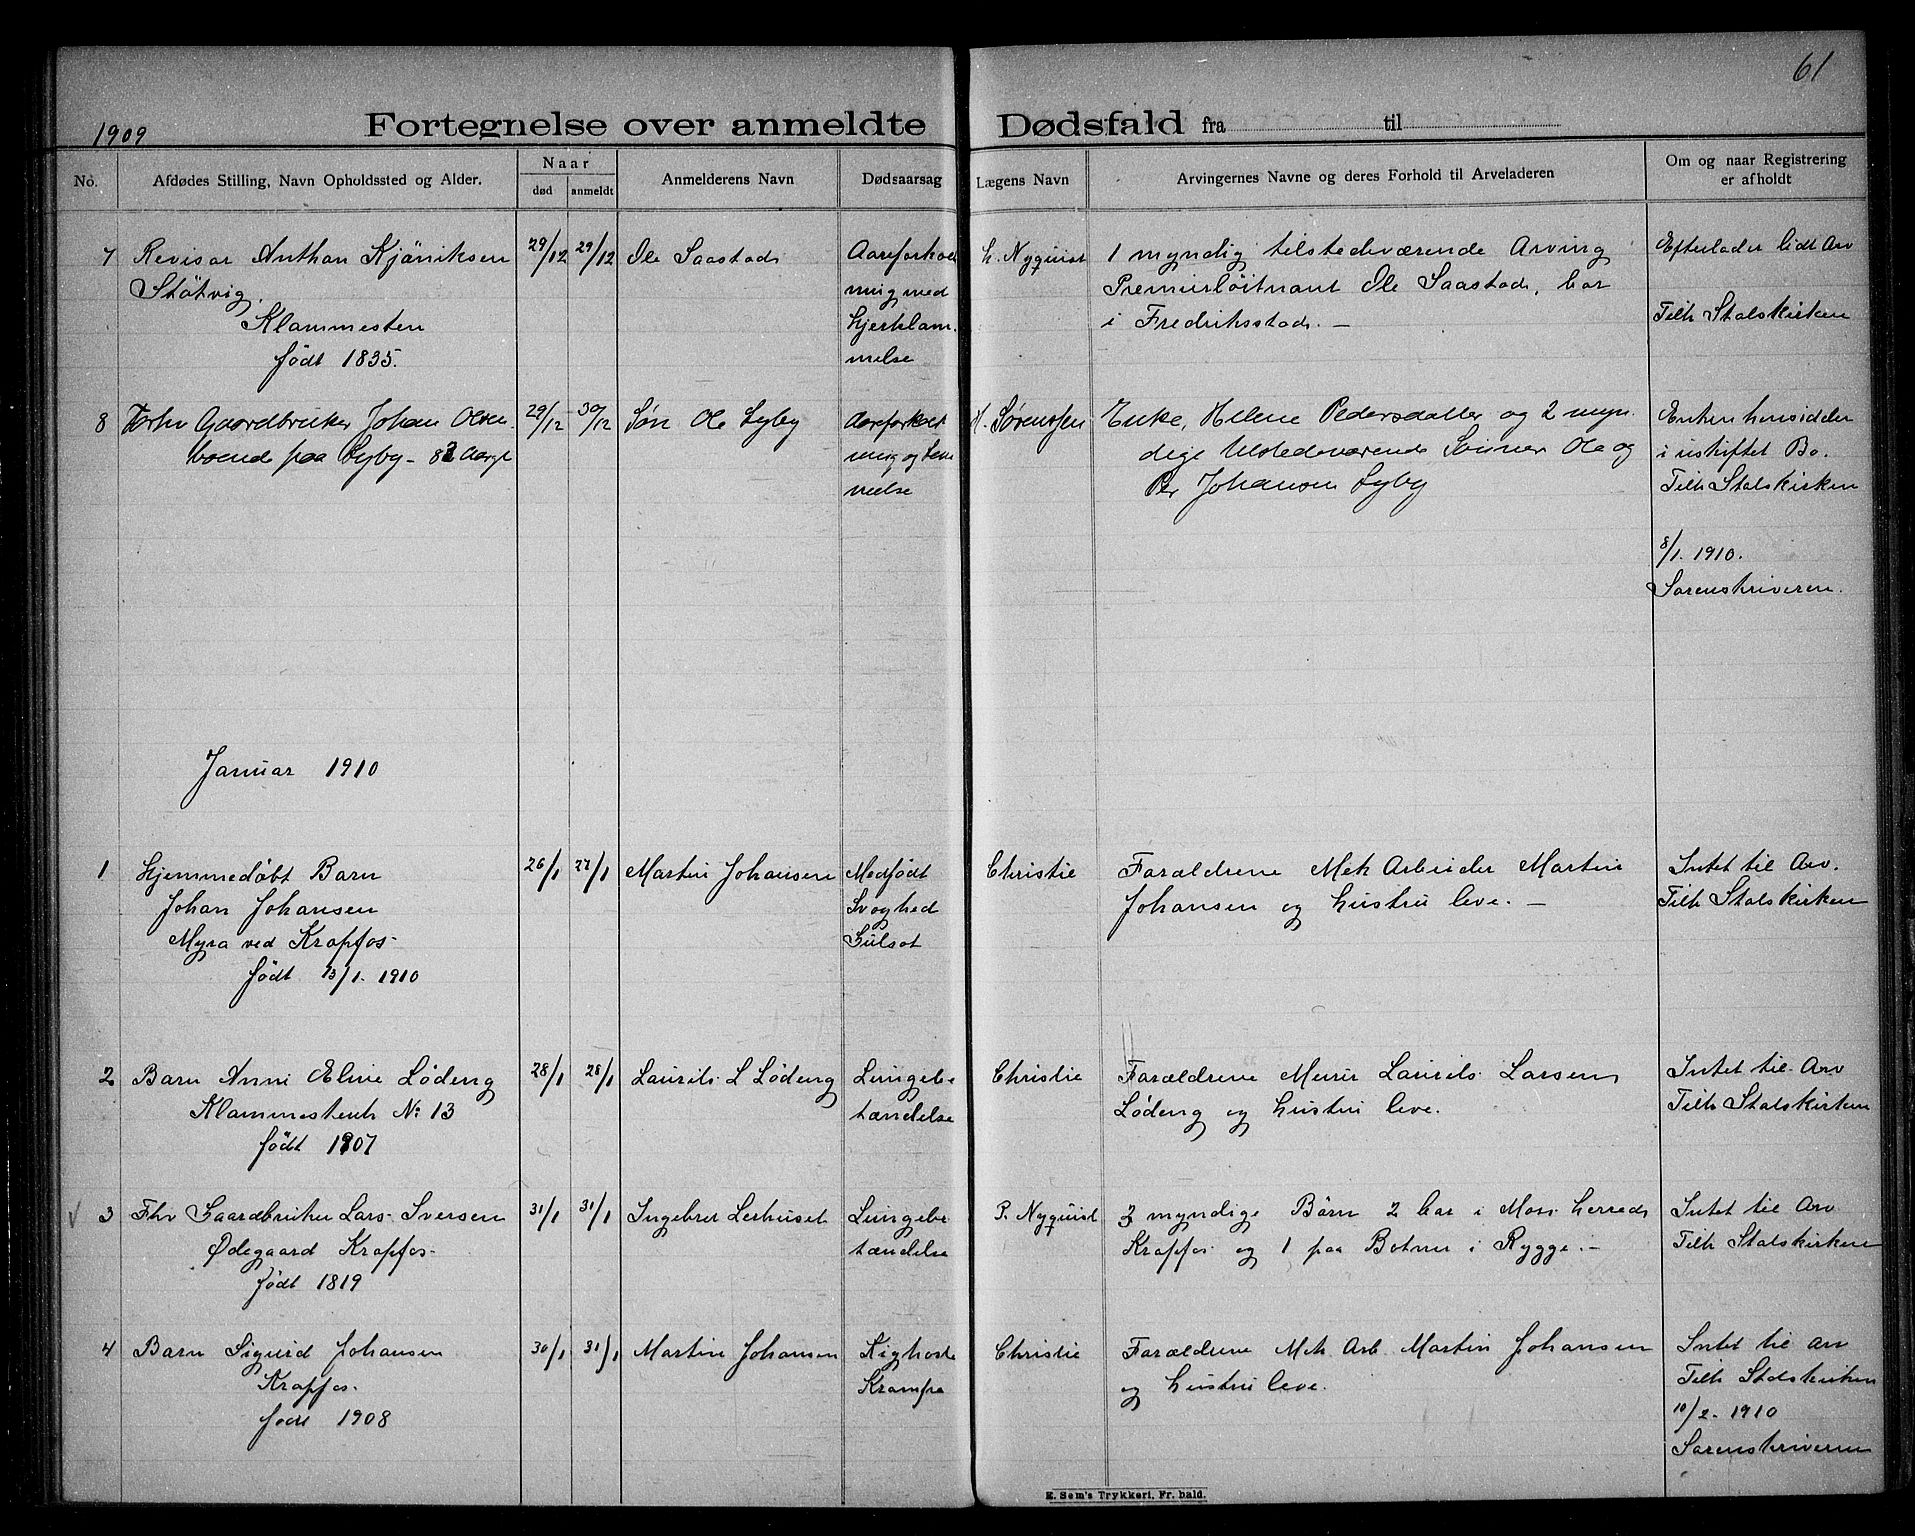 61
1909 Fortegnelse over anmeldte Dødsfald fra til
No. Afdødes Stilling, Navn Opholdssted og Alder. Naar død anmeldt Anmelderens Navn Dødsaarsag Lægens Navn Arvingernes Navne og deres Forhold til Arveladeren Om og naar Registrering er afholdt
7 Revisor Anthon Kjöniksen 29/12 29/12 Ole Saastad Aareforkal Nyquist 1 myndig tilstedeværende Arving Efterlader lidt Arv
Støtvig ning med Premierløitnant Ole Saastad, bor
Klommesten hjertelam i Fredriksstad. – Tilh Statskirken
født 1835. melse
8 Forhv Gaardbruker Johan Olsen 29/12 30/12 Søn Ole Lyby Aareforkalk H. Sørenssen Enke, Helene Pedersdatter og 2 myn Enken hensidder
boende paa Lyby – 83 Aar gl ning og Lam dige tilstedeværende Sønner Ole og i uskiftet Bo.
melse Per Johansen Lyby Tilh Statskirken
8/1. 1910.
Sorenskriveren.
Januar 1910
1 Hjemmedøbt Barn 26/1 27/1 Martin Johansen Medfødt Christie Forældrene Mek Arbeider Martin Intet til Arv.
Johan Johansen Svaghed Johansen og hustru leve. – Tilh Statskirken
Myra ved Krapfos – Gulsot
født 13/1. 1910
2 Barn Anni Eline Lødeng 28/1 28/1 Laurits L Lødeng Lungebe Christie Forældrene Murer Laurits Larsen Intet til Arv
Klommestenh No 13 tændelse Lødeng og hustru leve. Tilh Statskirken
født 1907
3 Fhv Gaardbruker Lars Iversen 31/1 31/1 Ingebret Lerhuset Lungebe P. Nyquist 3 myndige Børn 2 bor i Moss herred Intet til Arv
Ødegaard Krapfos – tændelse Krapfos og 1 paa Botner i Rygge. – Tilh Statskirken
født 1819
4 Barn Sigurd Johansen 30/1 31/1 Martin Johansen Kighoste Christie Forældrene Mek Arb Martin Johansen Intet til Arv
Krapfos Krampe og hustru leve. Tilh Statskirken
født 1908 10/2. 1910
Sorenskriveren
E. Sem's Trykkeri, Fr. hald.